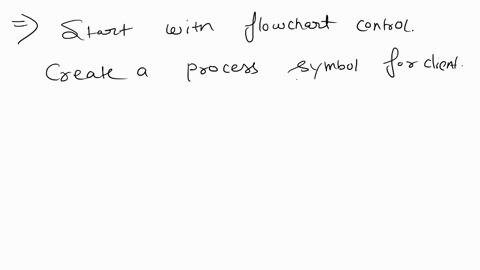 ⇒ Start with flowchart control.
Create a process symbol for client.